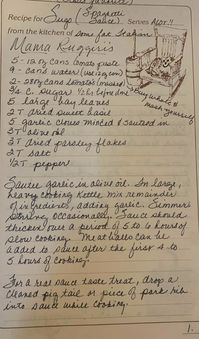 Recipe for Sugo (Spaghetti Sauce) Serves Alot!!
from the kitchen of some fat Italian
Mama Ruggeri's
5 - 12 oz cans tomato paste
9 - cans water (use 12 oz can)
2 - 28 oz cans tomatoes (mashed)
3/4 C. sugar 1/2 hr before done
5 large bay leaves
2 T dried sweet basil
5 garlic cloves minced & sauteed in
3 T olive oil
2 T dried parsley flakes
2 T salt
1/2 T pepper
Sautee garlic in olive oil. In large,
heavy cooking kettle mix remainder
of ingredients, adding garlic. Simmer
stirring occasionally. Sauce should
thicken over a period of 5 to 6 hours of
slow cooking. Meatballs can be
added to sauce after the first 4 to
5 hours of cooking.
For a real sauce taste treat, drop a
cleaned pig tail or piece of pork rib
into sauce while cooking.
1.